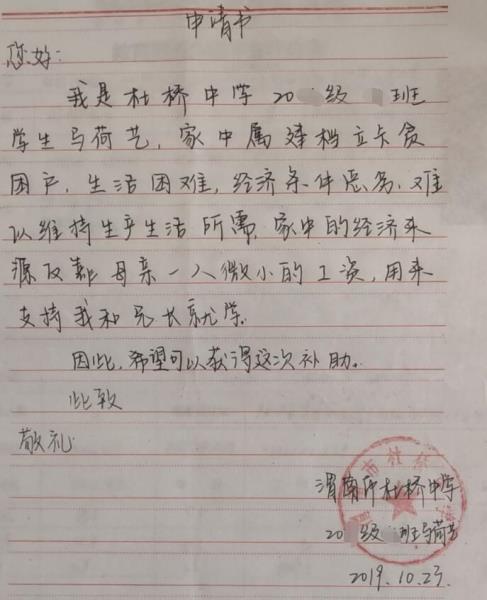 申请书
您好:
我是杜桥中学 20 级 班
学生马荷艺,家中属建档立卡贫
困户,生活困难,经济条件恶劣,难
以维持生产生活所需,家中的经济来
源仅靠母亲一人微小的工资,用来
支持我和兄长就学.
因此,希望可以获得这次补助.
此致
敬礼
渭南市杜桥中学
20 级 班马荷艺
2019.10.23.